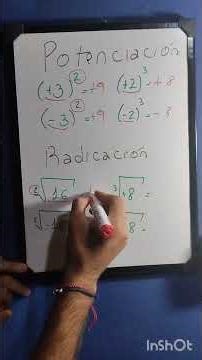 Potenciación
(+3)² = +9 (+2)³ = + 8
(-3)² = +9 (-2)³ = - 8
Radicación
²√16 ³√+8 =
8 =
InShOt